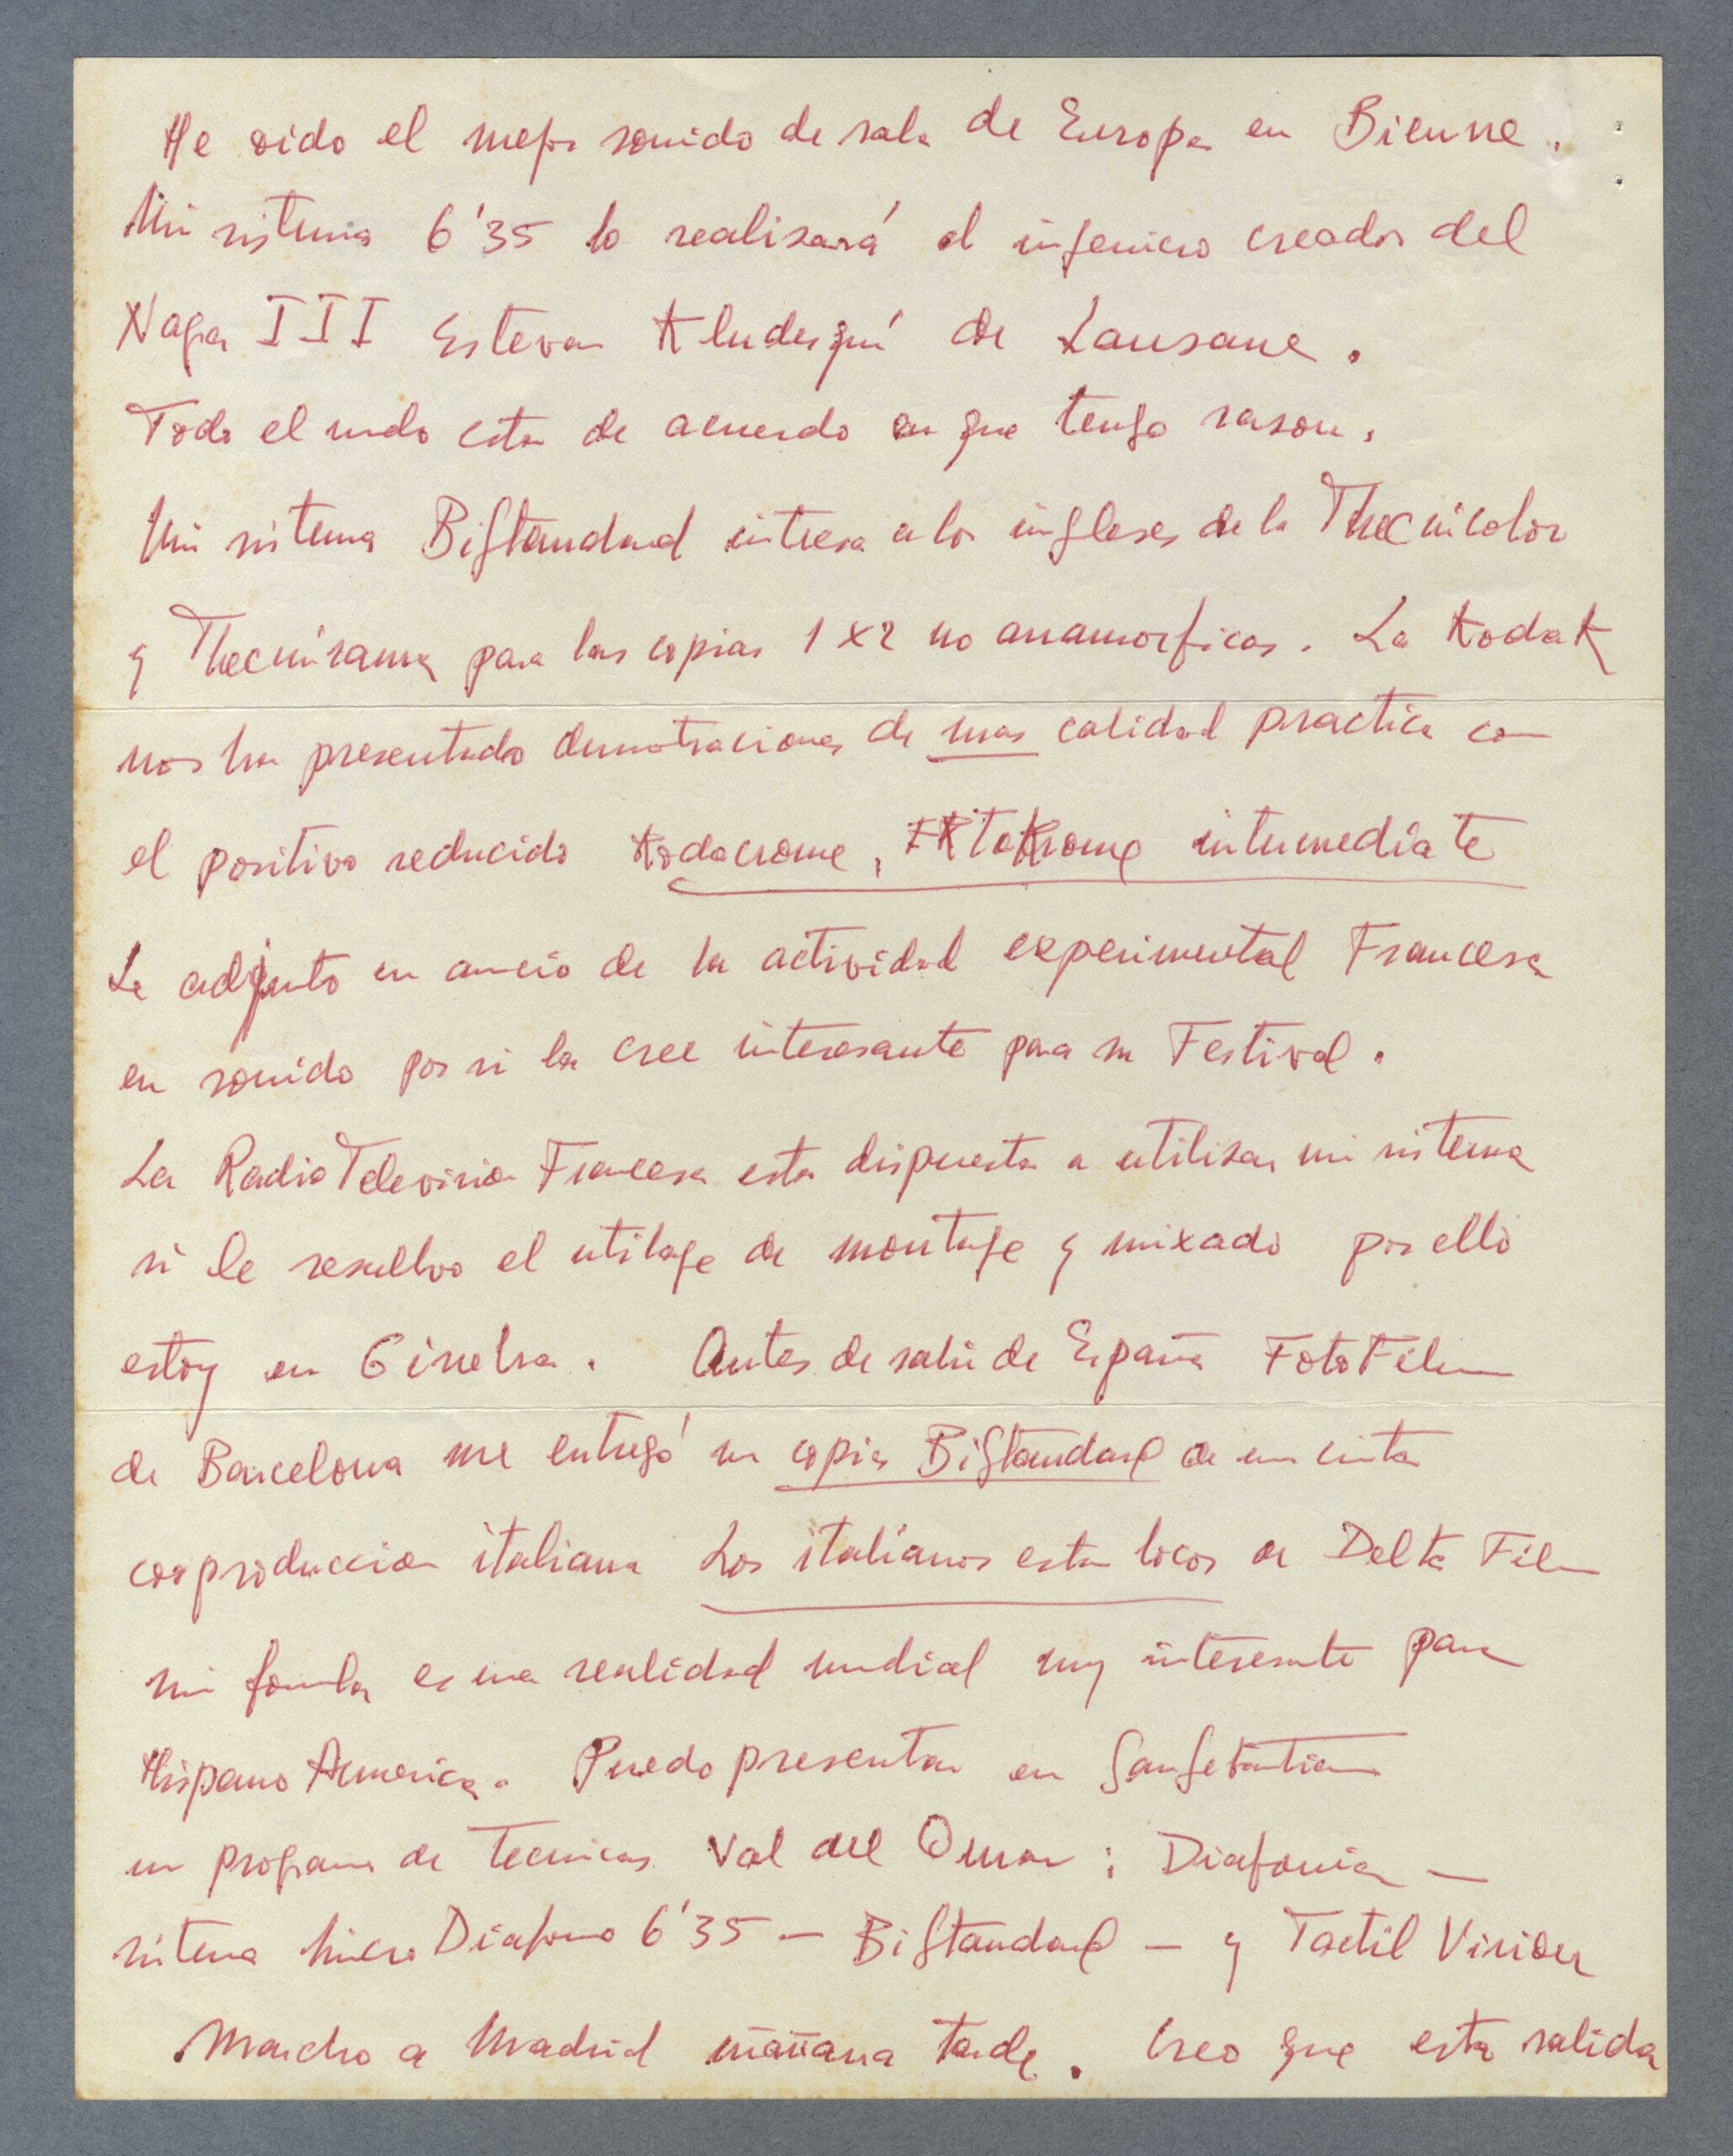 He oido el mejor sonido de sala de Europa en Bienne.
Mi sistema 6'35 lo realisará el ingeniero creador del
Nagra III Estevan Kludesqui de Lausane.
Todo el mudo esta de acuerdo en que tengo rason.
Mi sistema BiStandard intresa a los ingleses de la Thecnicolor
y Thecnirama para las copias 1x2 no anamorficas. La Kodak
nos ha presentado demostraciones de mas calidad practica con
el positivo reducido Kodacrome, EKtaKrome intermediate
Le adjunto un anucio de la actividad experimental Francesa
en sonido por si la cree interesante para su Festival.
La Radio Television Francesa esta dispuesta a utilisar mi sistema
si le resuelvo el utilage de montage y mixado por ello
estoy en Ginebra. Antes de salir de España FotoFilm
de Barcelona me entregó una copia BiStandard de una cinta
cooproduccion italiana Los italianos estan locos de Delta Film
mi formula es una realidad mundial muy interesante para
Hispano America. Puedo presentar en San Sebastian
un programa de tecnicas Val del Omar: Diafonia —
sistema micro Diafono 6'35 — BiStandard — y Tactil Vision
Marcho a Madrid mañana tarde. Creo que esta salida